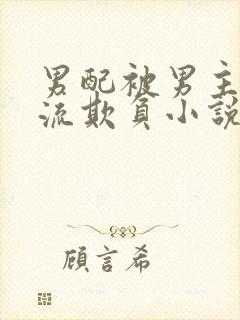 男配被男主
流欺負小說
顧言希